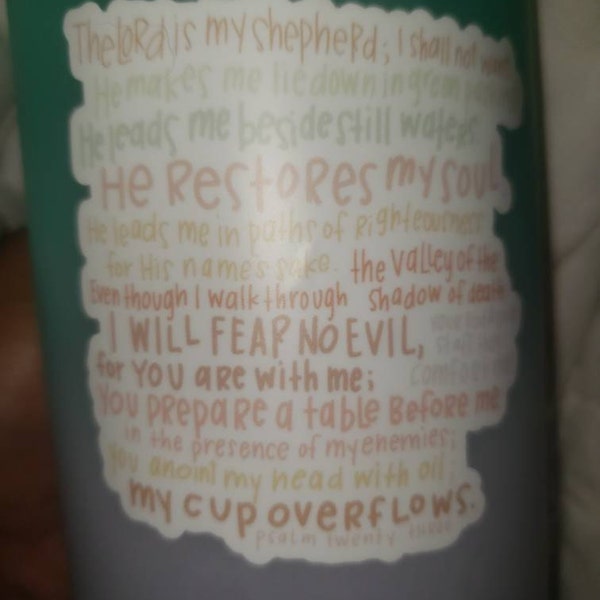 The LORD is my shepherd; I shall not want
He makes me lie down in green
He leads me beside still waters
He Restores my soul
He leads me in paths of Righteousness
for His name's sake.
Even though I walk through the valley of the shadow of death
I WILL FEAR NO EVIL,
for YOU are with me;
comfort me
You prepare a table Before me
in the presence of my enemies;
You anoint my head with oil;
my cup overflows.
psalm twenty three